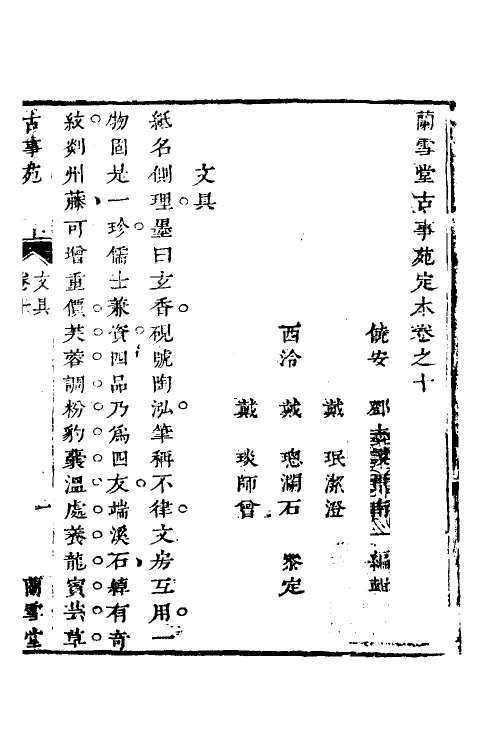 蘭雪堂古事苑定本卷之十
饒安 鄧 編輯
戴 珉潔澄
西泠 戴 璁瀾石 叅定
戴 琰師曾
文具
紙名側理墨曰玄香硯號陶泓筆稱不律文房互用一
物固是一珍儒士兼資四品乃爲四友端溪石綽有奇
紋剡州藤可增重價芙蓉調粉豹囊溫處養龍賓芸草
古事苑 上 文具 卷十 一 蘭雪堂